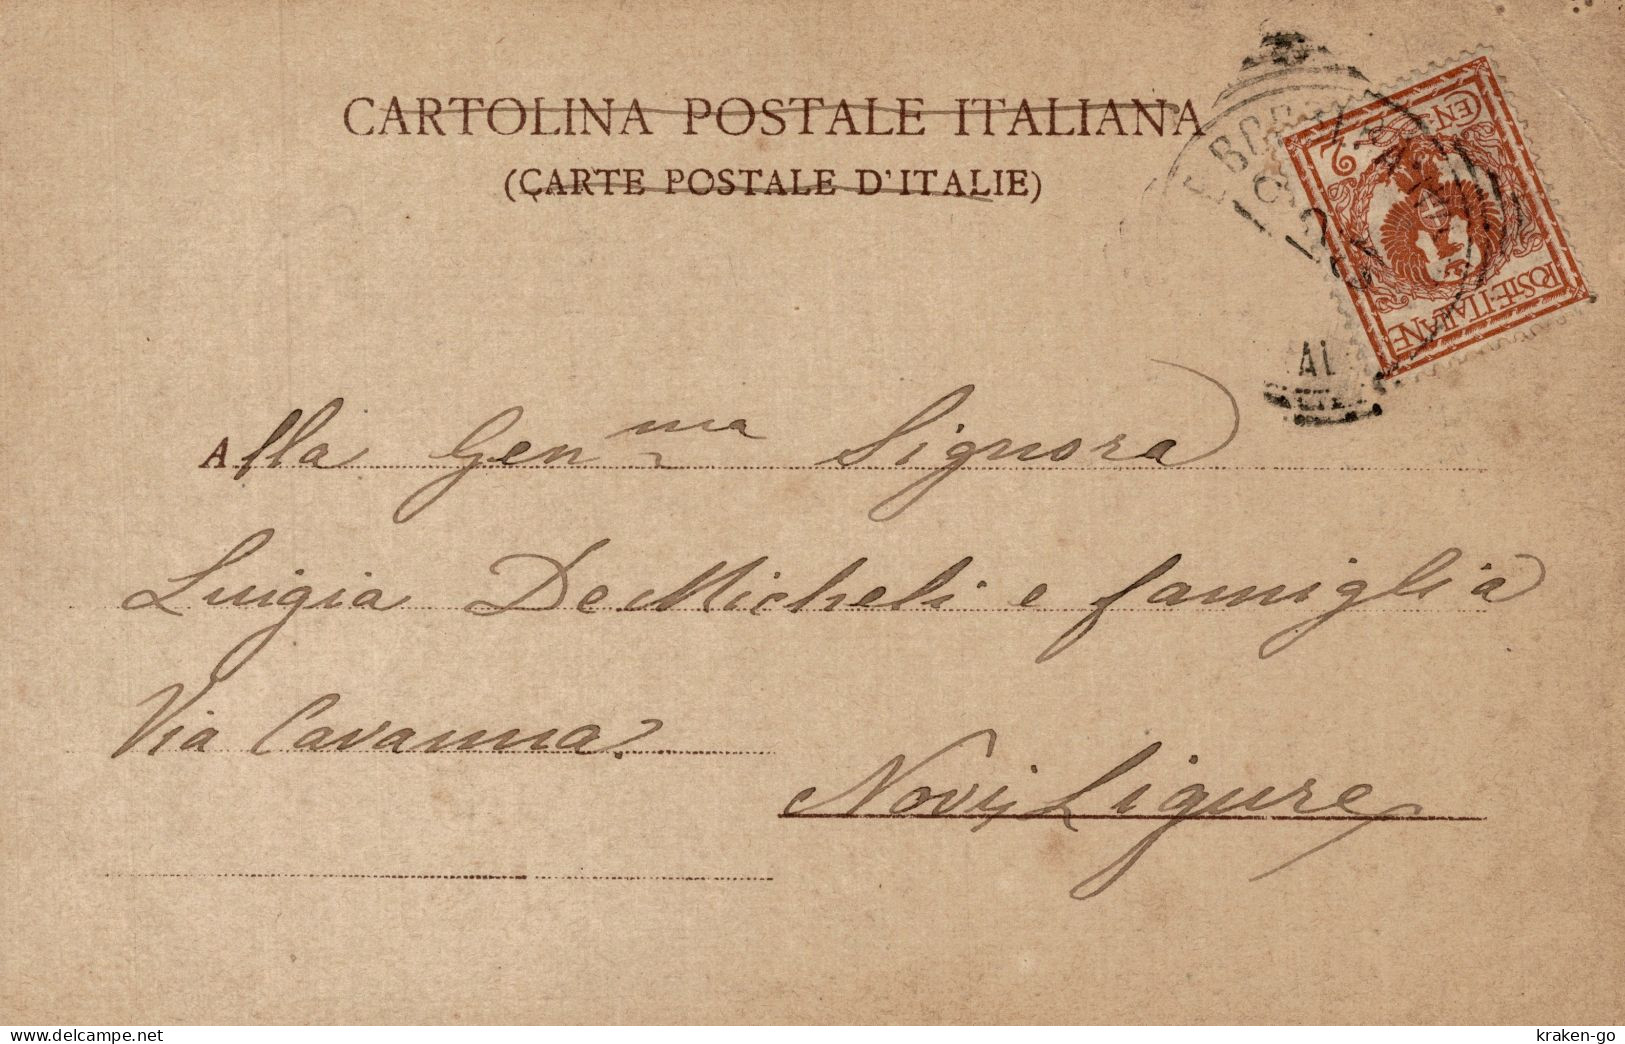 CARTOLINA POSTALE ITALIANA
(CARTE POSTALE D'ITALIE)
CEN. 2
POSTE·ITALIANE
Alla Gen.ma Signora
Luigia DeMicheli e famiglia
Via Cavanna.
Novi Ligure
www.delcampe.net
kraken-go